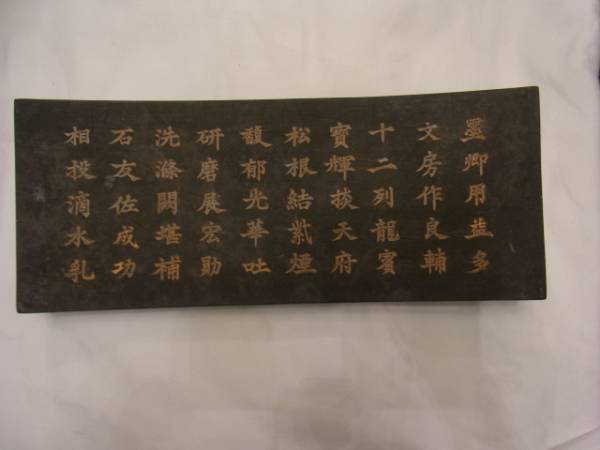 墨卿用益多
文房作良輔
十二列龍賓
寶輝掞天府
松根結紫煙
馥郁光華吐
研磨展宏勛
洗滌闕堪補
石友佐成功
相投滴水乳